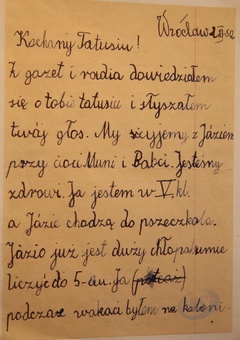 Wrocław 2 III-52
Kochany Tatusiu!
Z gazet i radia dowiedziałem
się o tobie tatusiu i słyszałem
twój głos. My żyjemy z Józiem
przy cioci Muni i Babci. Jesteśmy
zdrowi. Ja jestem w V kl.
a Józio chodzą do pszeczkola.
Józio już jest duży chłopak umie
liczyć do 5-ciu. Ja
podczas wakaci byłem na koloni.